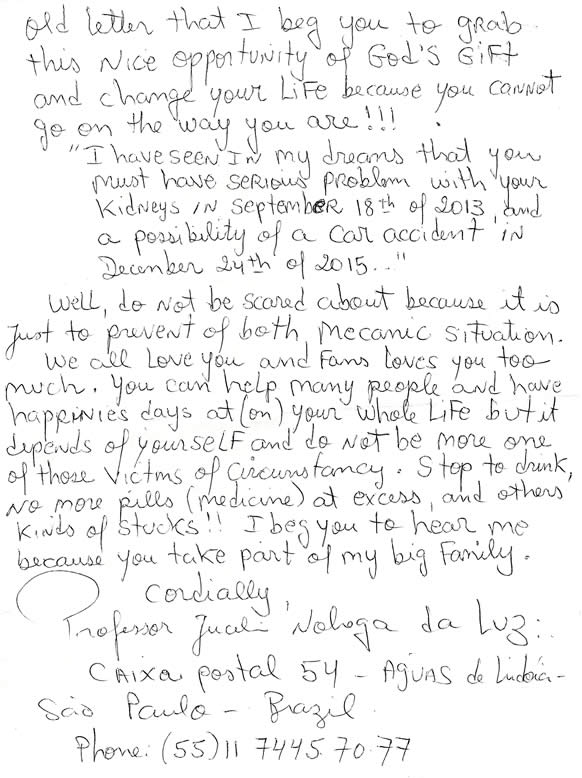 old letter that I beg you to grab
this Nice opportunity of God's Gift
and change your Life because you cannot
go on the way you are!!!
"I have seen In my dreams that you
must have serious problem with your
Kidneys in September 18th of 2013, and
a possibility of a car accident in
December 24th of 2015..."
Well, do not be scared about because it is
Just to prevent of both, mecanic situation.
We all Love you and Fans loves you too
much. You can help many people and have
happinies days at (on) your whole Life but it
depends of yourself and do not be more one
of those Victms of Circunstancy. Stop to drink,
no more pills (medicine) at excess, and others
Kinds of Stucks!! I beg you to hear me
because you take part of my big Family.
Cordially,
Professor da Luz:.
Caixa postal 54 - Águas de Lindóia -
São Paulo - Brazil
Phone: (55) 11 7445.70.77